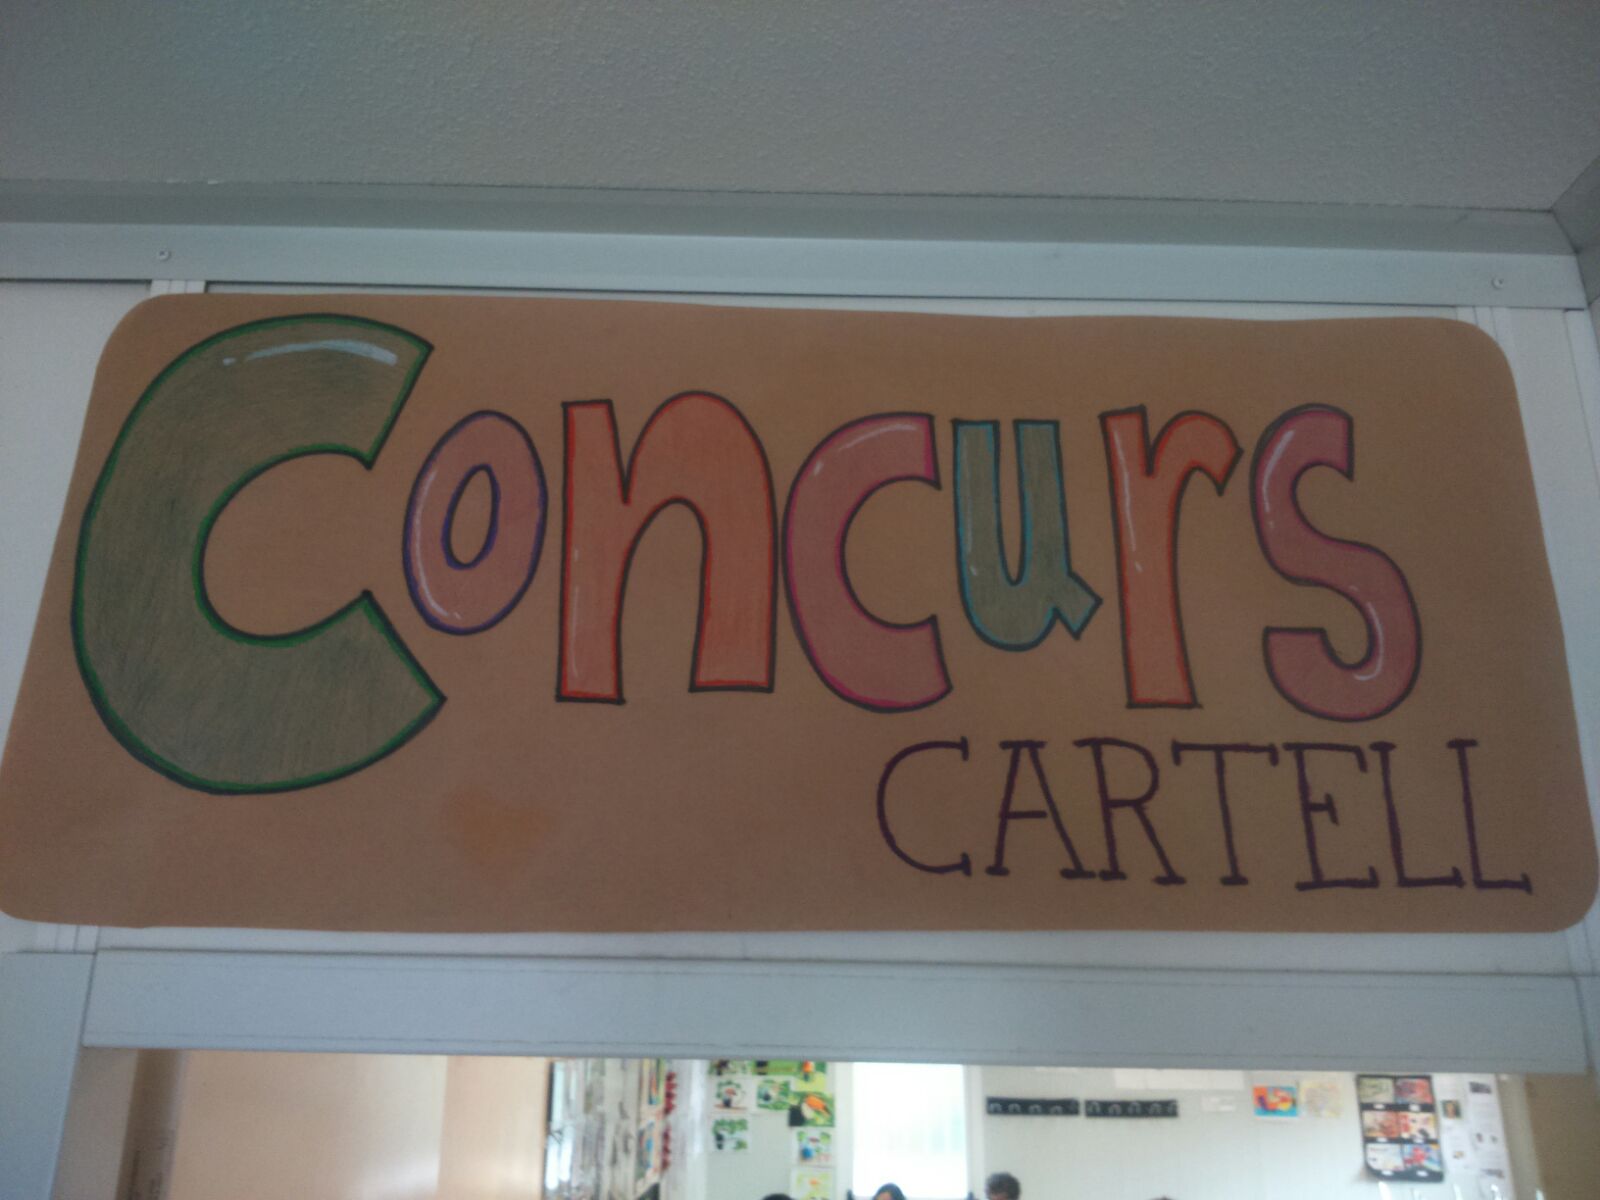 Concurs
CARTELL